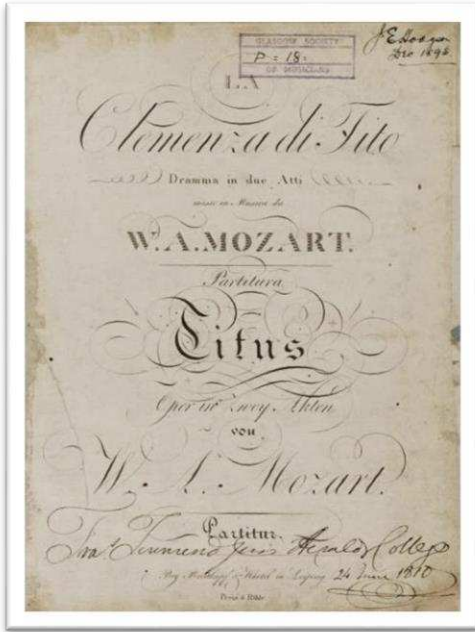 GLASGOW SOCIETY
P = 18.
OF MUSICIANS
Dec 1895
LA
Clemenza di Tito
Dramma in due Atti
messo in Musica da
W. A. MOZART.
Partitura
Titus
Oper in zwey Akten
von
W. A. Mozart.
Partitur.
Fras. Townsend Heralds College
Bey Breitkopf & Härtel in Leipzig 24 June 1810
Preis